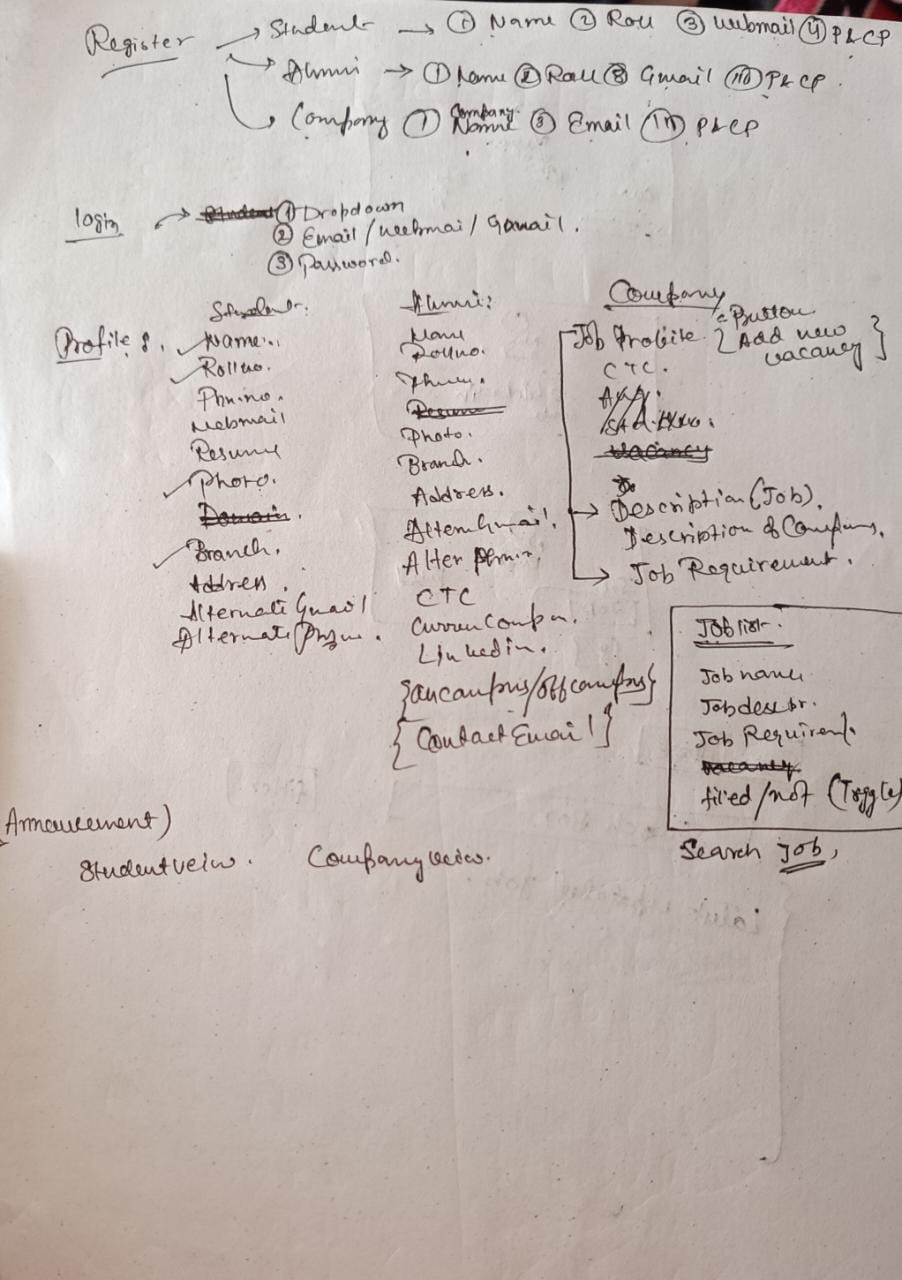 Register → Student → ① Name ② Roll ③ Webmail ④ P & CP
→ Alumni → ① Name ② Roll ③ Gmail ④ P & CP.
→ Company ① Company Name ③ Email P & CP
login → ① Dropdown
② Email / Webmai / Gamail.
③ Password.
Profile :
Student:
✓ Name:
✓ Rollno.
Phn.no.
Webmail
Resume
✓ Photo.
Domain.
✓ Branch.
Address.
Alternate Gmail
Alternate Phone.
Alumni:
Name
Rollno.
Phone.
Resume
Photo.
Branch.
Address.
Altern Gmail.
Alter Phn.n.
CTC
Curren Compn.
Linkedin.
{ancampus/off campus}
{Contact Email}
Company
Job Profile {Button Add new vacancy}
CTC.
Vacancy
→ Description (Job).
Description of Company.
→ Job Requirement.
Job list.
Job name
Job descpr.
Job Requirem.
Vacancy
filed/not (Toggle)
Search Job,
(Annoucement)
Student veiw. Company veiw.